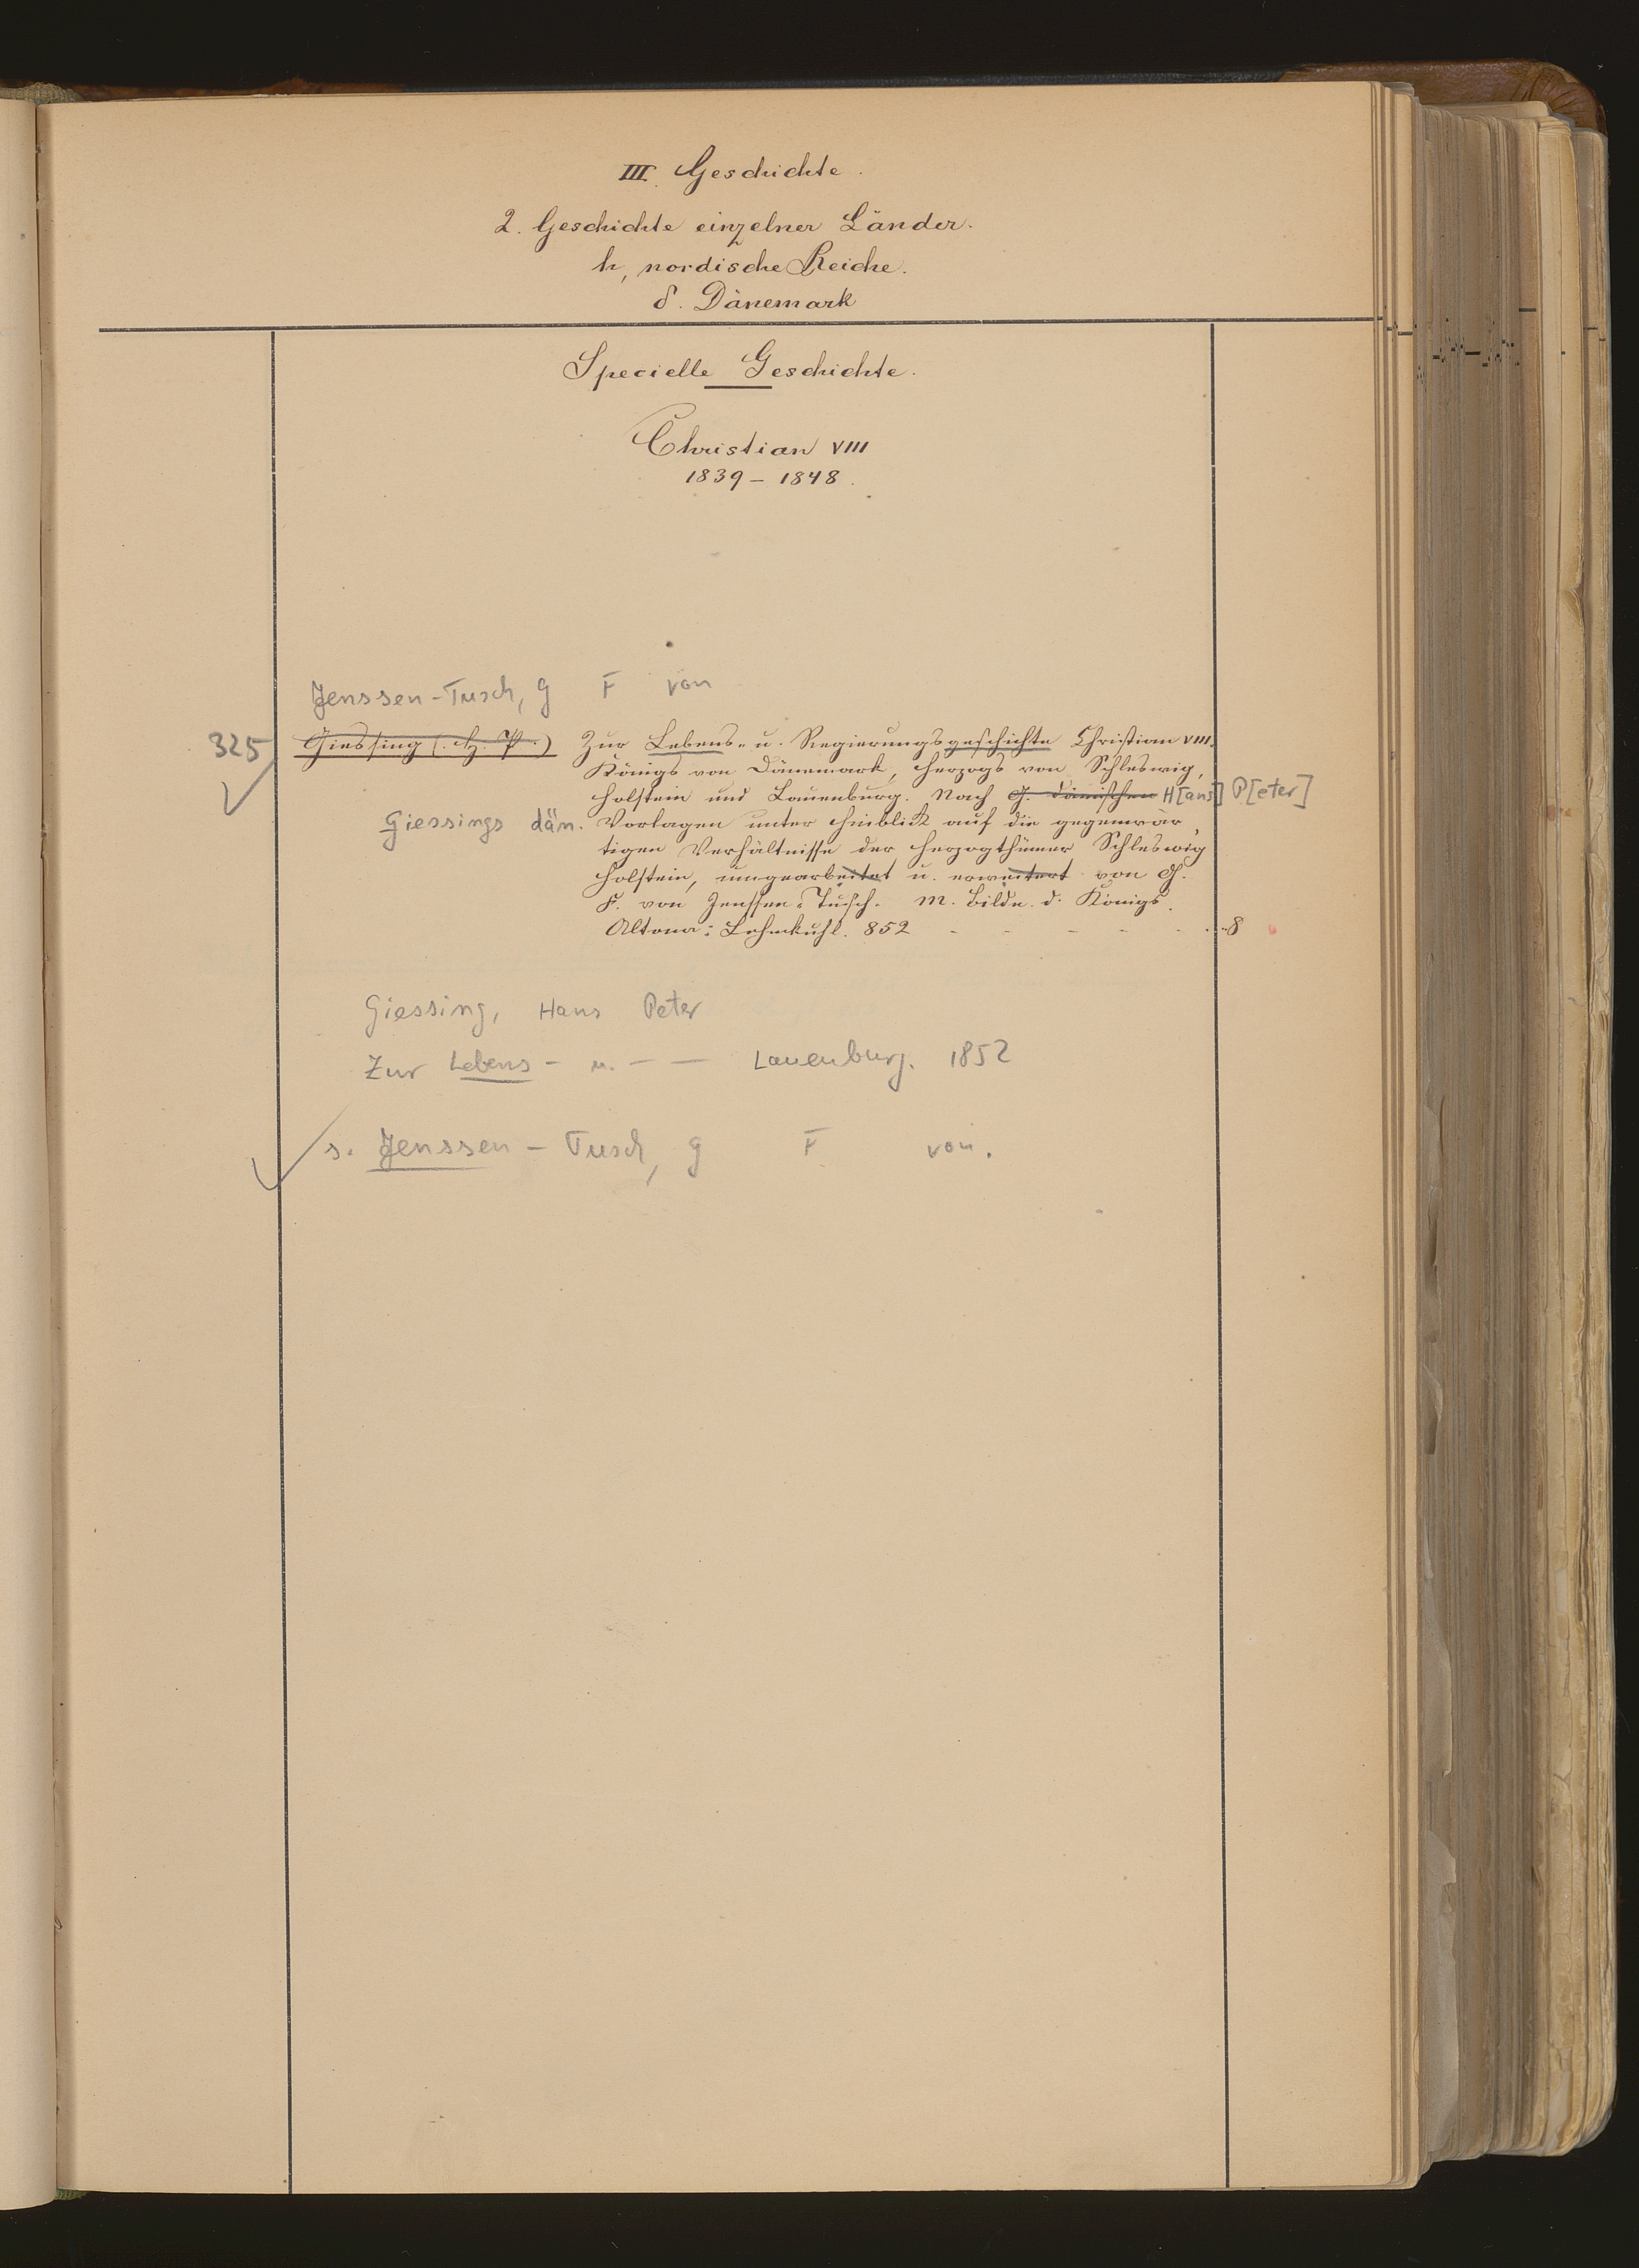 III. Geschichte.
2. Geschichte einzelner Länder.
h, nordische Reiche.
δ. Dänemark
Specielle Geschichte.
Christian VIII
1839 – 1848.
Jenssen-Tusch, G F von
325 Giessing (H. P.) Zur Lebens- u. Regierungsgeschichte Christian VIII.
Königs von Dänemark, Herzogs von Schleswig,
Holstein und Lauenburg. Nach G. dänischen H[ans] P[eter]
Giessings dän. Vorlagen unter Hinblick auf die gegenwär-
tigen Verhältnisse der Herzogthümer Schleswig
Holstein, umgearbeitet u. erweitert von G.
F. von Jenssen-Tusch. M. Bildn. d. Königs.
Altona: Lehmkuhl. 852 - - - - - 8
Giessing, Hans Peter
Zur Lebens- u. — — Lauenburg. 1852
s. Jenssen-Tusch, G F von.